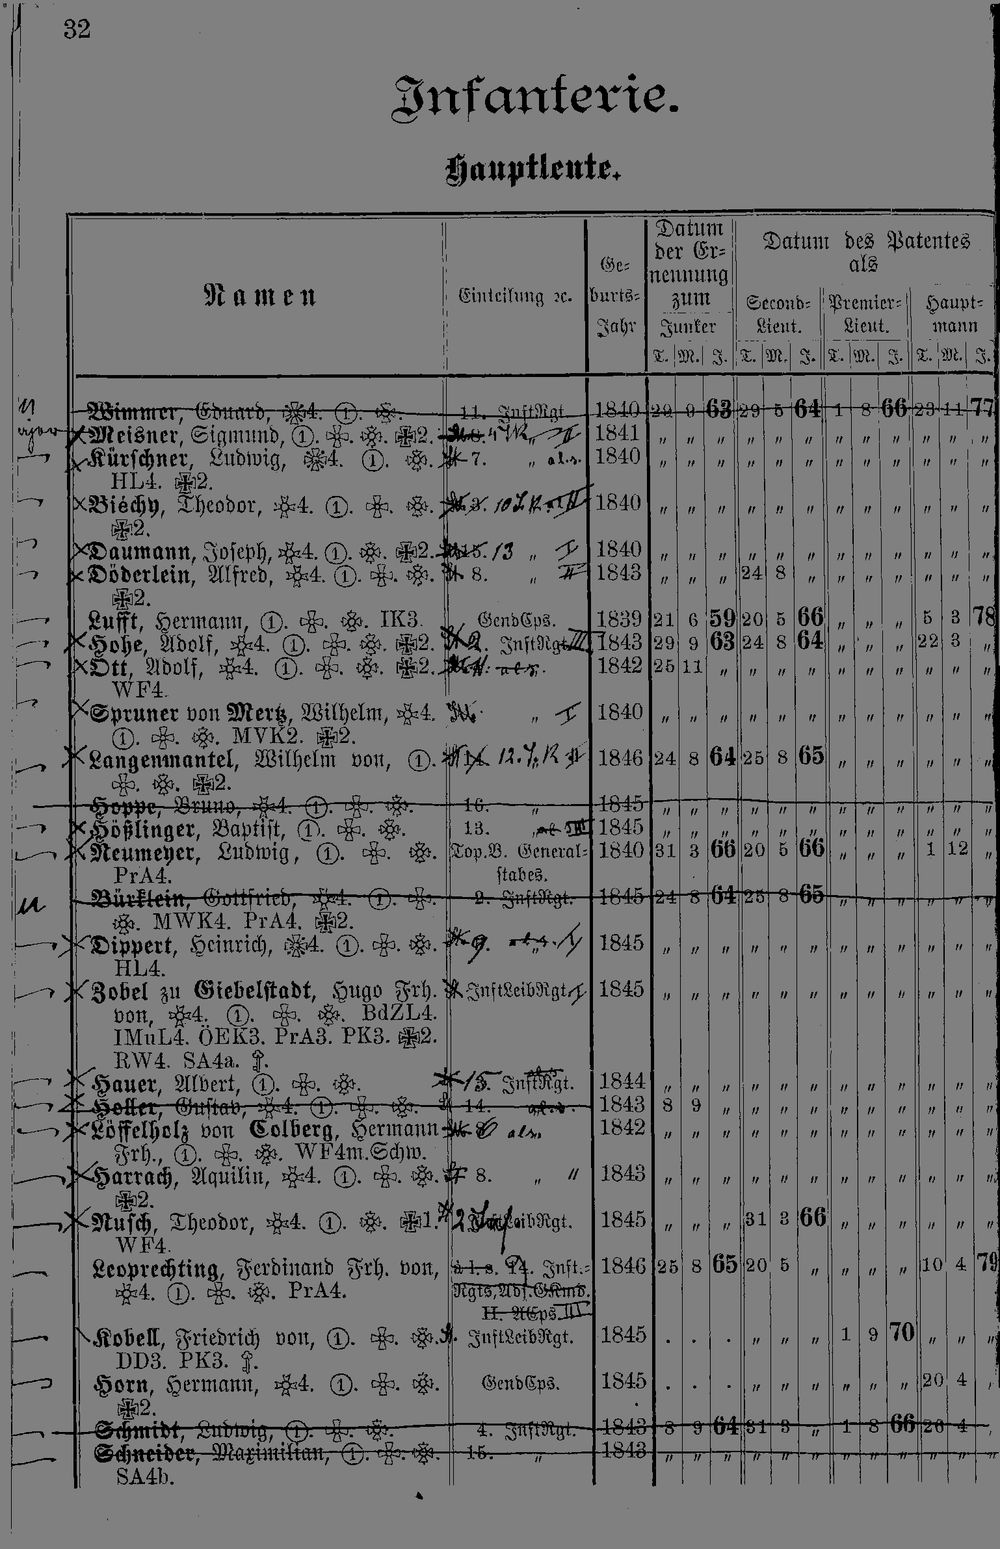 32
Infanterie.
Hauptleute.
Namen
Einteilung ꝛc.
Ge-
burts-
Jahr
Datum
der Er-
nennung
zum
Junker
Datum des Patentes
als
Second-
Lieut.
Premier-
Lieut.
Haupt-
mann
T. M. J. T. M. J. T. M. J. T. M. J.
Wimmer, Eduard, 4. ①. 11. InftRgt. 1840 29 9 63 29 5 64 1 8 66 23 11 77
Meisner, Sigmund, ①. 2. 1841 „ „ „ „ „ „ „ „ „ „ „ „
Kürschner, Ludwig, 4. ①. 7. „ 1840 „ „ „ „ „ „ „ „ „ „ „ „
HL4. 2.
Biéchy, Theodor, 4. ①. 1840 „ „ „ „ „ „ „ „ „ „ „ „
2.
Daumann, Joseph, 4. ①. 2. 15. 13 „ 1840 „ „ „ „ „ „ „ „ „ „ „ „
Döderlein, Alfred, 4. ①. 8. „ II 1843 „ „ „ 24 8 „ „ „ „ „ „ „
2.
Lufft, Hermann, ①. IK3. GendCps. 1839 21 6 59 20 5 66 „ „ „ 5 3 78
Hohe, Adolf, 4. ①. 2. 2. InftRgt. III 1843 29 9 63 24 8 64 „ „ „ 22 3 „
Ott, Adolf, 4. ①. 2. 1842 25 11 „ „ „ „ „ „ „ „ „ „
WF4.
Spruner von Mertz, Wilhelm, 4. „ I 1840 „ „ „ „ „ „ „ „ „ „ „ „
①. MVK2. 2.
Langenmantel, Wilhelm von, ①. 14. 12. 1846 24 8 64 25 8 65 „ „ „ „ „ „
2.
Hoppe, Bruno, 4. ①. 16. „ 1845 „ „ „ „ „ „ „ „ „ „ „ „
Hößlinger, Baptist, ①. 13. „ III 1845 „ „ „ „ „ „ „ „ „ „ „ „
Neumeyer, Ludwig, ①. Top.B. General- 1840 31 3 66 20 5 66 „ „ „ 1 12 „
PrA4. stabes.
Bürklein, Gottfried, 4. ①. 2. InftRgt. 1845 24 8 64 25 8 65 „ „ „ „ „ „
MWK4. PrA4. 2.
Dippert, Heinrich, 4. ①. 9. „ I 1845 „ „ „ „ „ „ „ „ „ „ „ „
HL4.
Zobel zu Giebelstadt, Hugo Frh. InftLeibRgt. I 1845 „ „ „ „ „ „ „ „ „ „ „ „
von, 4. ①. BdZL4.
IMuL4. ÖEK3. PrA3. PK3. 2.
RW4. SA4a.
Hauer, Albert, ①. 15. InftRgt. 1844 „ „ „ „ „ „ „ „ „ „ „ „
Holler, Gustav, 4. ①. 14. 1843 8 9 „ „ „ „ „ „ „ „ „ „
Löffelholz von Colberg, Hermann 1842 „ „ „ „ „ „ „ „ „ „ „ „
Frh., ①. WF4m.Schw.
Harrach, Aquilin, 4. ①. 8. „ „ 1843 „ „ „ „ „ „ „ „ „ „ „ „
2.
Nusch, Theodor, 4. ①. 1. 2 LeibRgt. 1845 „ „ „ 31 3 66 „ „ „ „ „ „
WF4.
Leoprechting, Ferdinand Frh. von, à l. s. 14. Inft.- 1846 25 8 65 20 5 „ „ „ „ 10 4 79
4. ①. PrA4. Rgts, Adj. GKmd.
II. ACps. III
Kobell, Friedrich von, ①. InftLeibRgt. 1845 . . . „ „ „ 1 9 70 „ „ „
DD3. PK3.
Horn, Hermann, 4. ①. GendCps. 1845 . . . „ „ „ „ „ „ 20 4 „
2.
Schmidt, Ludwig, ①. 4. InftRgt. 1843 8 9 64 31 3 „ 1 8 66 26 4 „
Schneider, Maximilian, ①. 15. „ 1843 „ „ „ „ „ „ „ „ „ „ „ „
SA4b.